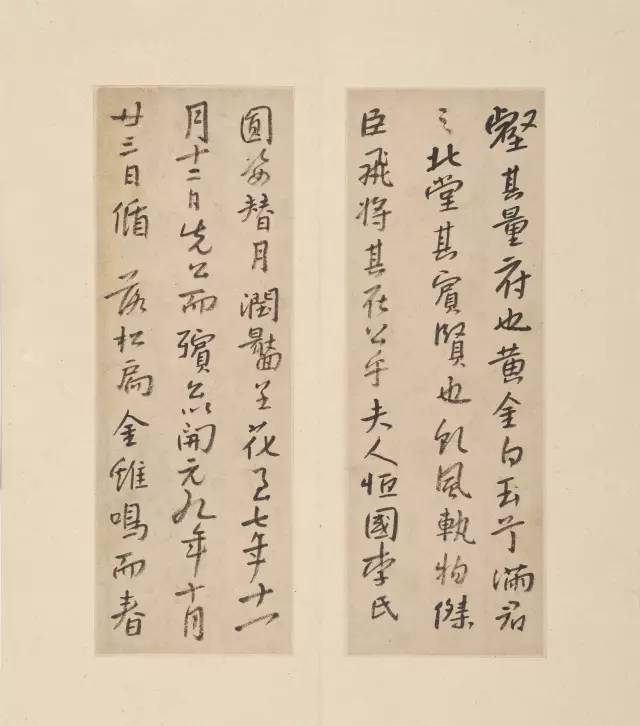 壑其量府也黄金白玉不滿君
之北堂其賓賢也風執物傑
臣飛將其在公乎夫人恒國李氏
圓姿替月潤靨呈花七年十一
月十二日先公而殯公以開元九年十月
廿三日循松扃金雞鳴而春